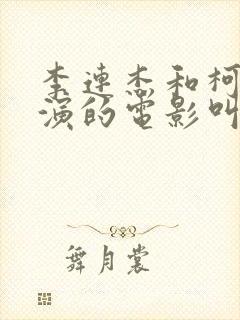 李连杰和柯
演的电影叫
舞月裳